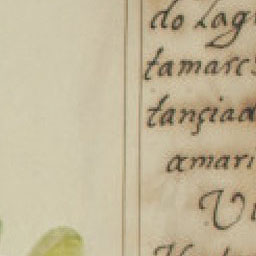 do lag
tamarc
tançiad
amari
Vi